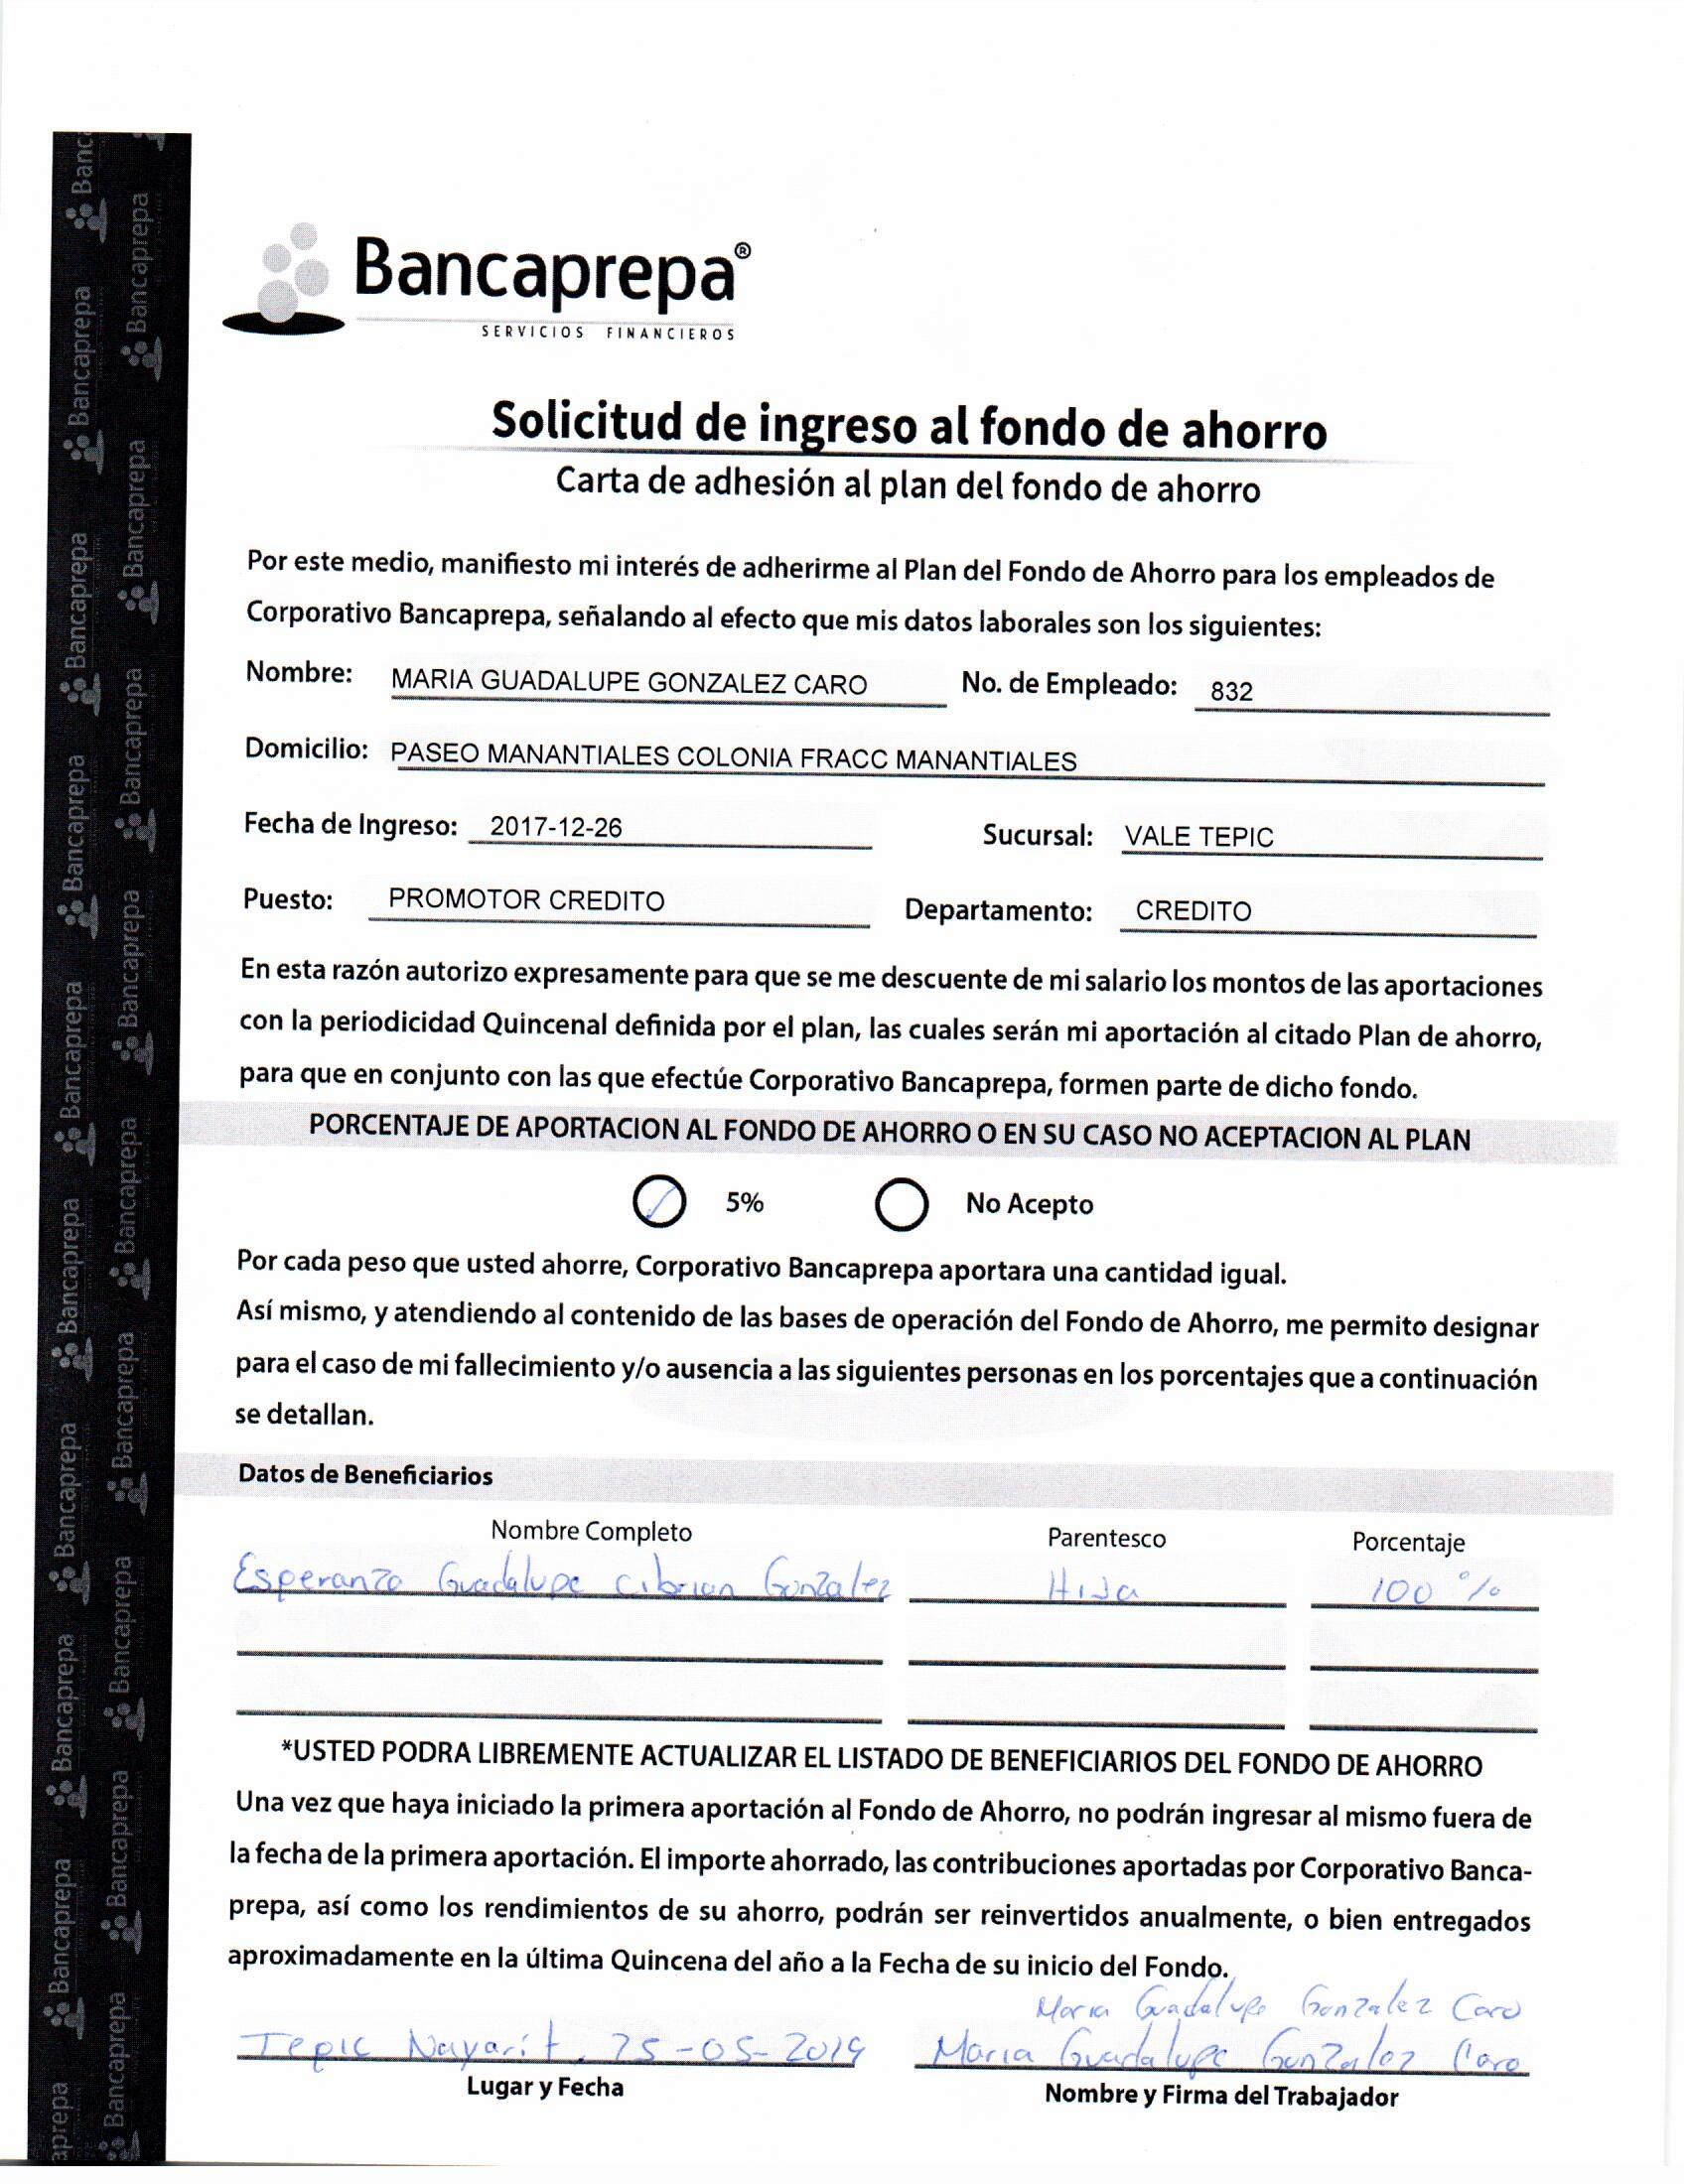 Bancaprepa®
SERVICIOS FINANCIEROS
Solicitud de ingreso al fondo de ahorro
Carta de adhesión al plan del fondo de ahorro
Por este medio, manifiesto mi interés de adherirme al Plan del Fondo de Ahorro para los empleados de
Corporativo Bancaprepa, señalando al efecto que mis datos laborales son los siguientes:
Nombre: MARIA GUADALUPE GONZALEZ CARO No. de Empleado: 832
Domicilio: PASEO MANANTIALES COLONIA FRACC MANANTIALES
Fecha de Ingreso: 2017-12-26 Sucursal: VALE TEPIC
Puesto: PROMOTOR CREDITO Departamento: CREDITO
En esta razón autorizo expresamente para que se me descuente de mi salario los montos de las aportaciones
con la periodicidad Quincenal definida por el plan, las cuales serán mi aportación al citado Plan de ahorro,
para que en conjunto con las que efectúe Corporativo Bancaprepa, formen parte de dicho fondo.
PORCENTAJE DE APORTACION AL FONDO DE AHORRO O EN SU CASO NO ACEPTACION AL PLAN
5% No Acepto
Por cada peso que usted ahorre, Corporativo Bancaprepa aportara una cantidad igual.
Así mismo, y atendiendo al contenido de las bases de operación del Fondo de Ahorro, me permito designar
para el caso de mi fallecimiento y/o ausencia a las siguientes personas en los porcentajes que a continuación
se detallan.
Datos de Beneficiarios
Nombre Completo Parentesco Porcentaje
Esperanza Guadalupe Cibrian Gonzalez HiJa 100 %
*USTED PODRA LIBREMENTE ACTUALIZAR EL LISTADO DE BENEFICIARIOS DEL FONDO DE AHORRO
Una vez que haya iniciado la primera aportación al Fondo de Ahorro, no podrán ingresar al mismo fuera de
la fecha de la primera aportación. El importe ahorrado, las contribuciones aportadas por Corporativo Banca-
prepa, así como los rendimientos de su ahorro, podrán ser reinvertidos anualmente, o bien entregados
aproximadamente en la última Quincena del año a la Fecha de su inicio del Fondo.
Maria Guadalupe Gonzalez Caro
Tepic Nayarit. 25-05-2019 Maria Guadalupe Gonzalez Caro
Lugar y Fecha Nombre y Firma del Trabajador